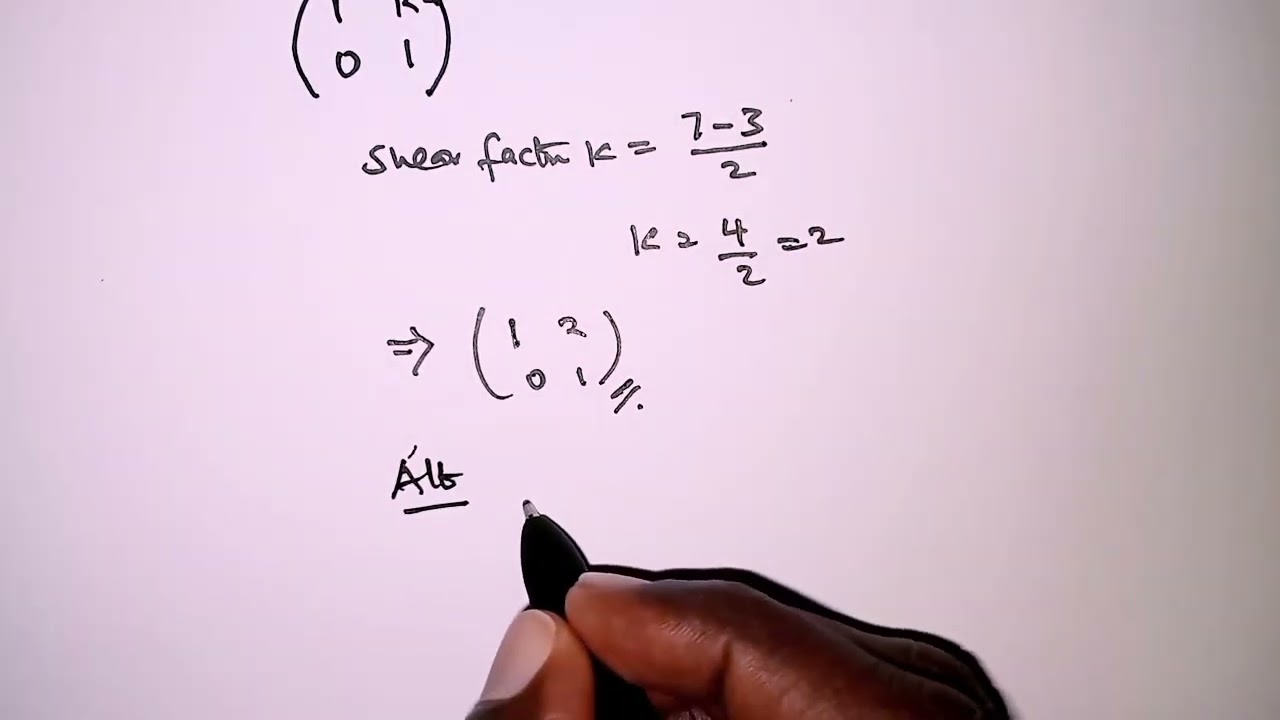 ( 1 k )
( 0 1 )
shear factor k = 7-3 / 2
k = 4/2 = 2
⇒ ( 1 2 )
( 0 1 )
Alt